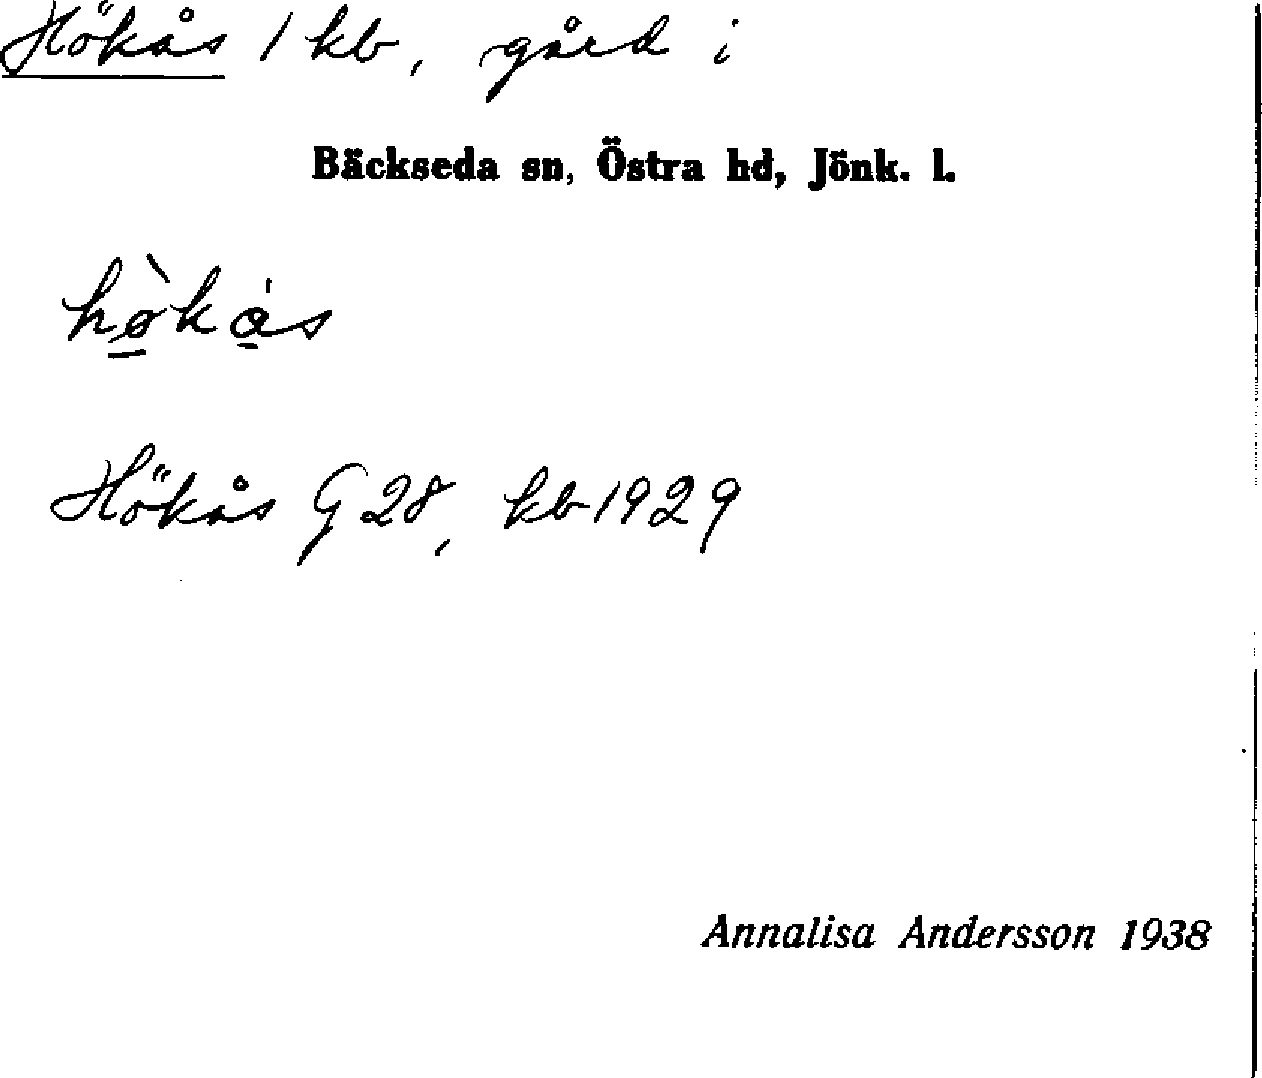 Hökås 1 kb, gård i
Bäckseda sn, Östra hd, Jönk. l.
hø̠̀kǻ̠s
Hökås G 28, kb 1929
Annalisa Andersson 1938